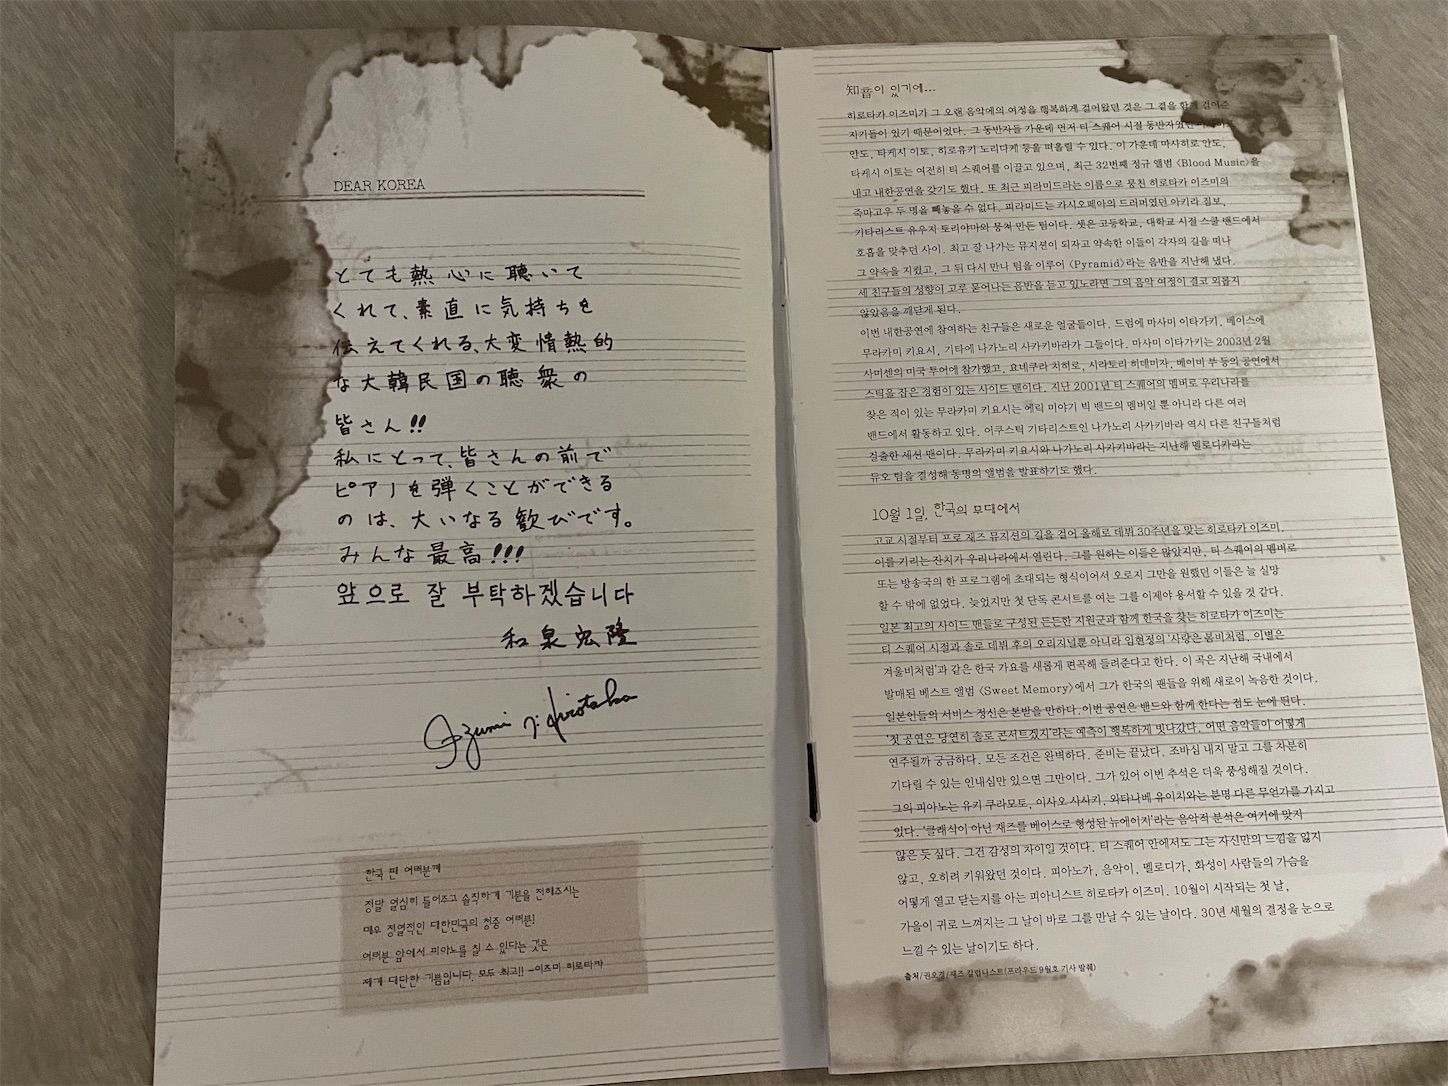 DEAR KOREA
とても熱心に聴いて
くれて、素直に気持ちを
伝えてくれる、大変情熱的
な大韓民国の聴衆の
皆さん!!
私にとって、皆さんの前で
ピアノを弾くことができる
のは、大いなる歓びです。
みんな最高!!!
앞으로 잘 부탁하겠습니다
和泉宏隆
Izumi Hirotaka
한국 팬 여러분께
정말 열심히 들어주고 솔직하게 기분을 전해주시는
매우 정열적인 대한민국의 청중 여러분!
여러분 앞에서 피아노를 칠 수 있다는 것은
제게 대단한 기쁨입니다. 모두 최고!! -이즈미 히로타카
知音이 있기에...
히로타카 이즈미가 그 오랜 음악에의 여정을 행복하게 걸어왔던 것은 그 곁을 함께 걸어준
지기들이 있기 때문이었다. 그 동반자들 가운데 먼저 티 스퀘어 시절 동반자였던
안도, 타케시 이토, 히로유키 노리다케 등을 떠올릴 수 있다. 이 가운데 마사히로 안도,
타케시 이토는 여전히 티 스퀘어를 이끌고 있으며, 최근 32번째 정규 앨범 〈Blood Music〉을
내고 내한공연을 갖기도 했다. 또 최근 피라미드라는 이름으로 뭉친 히로타카 이즈미의
죽마고우 두 명을 빼놓을 수 없다. 피라미드는 카시오페아의 드러머였던 아키라 짐보,
기타리스트 유우지 토리야마와 뭉쳐 만든 팀이다. 셋은 고등학교, 대학교 시절 스쿨 밴드에서
호흡을 맞추던 사이. 최고 잘 나가는 뮤지션이 되자고 약속한 이들이 각자의 길을 떠나
그 약속을 지켰고, 그 뒤 다시 만나 팀을 이루어 〈Pyramid〉라는 음반을 지난해 냈다.
세 친구들의 성향이 고루 묻어나는 음반을 듣고 있노라면 그의 음악 여정이 결코 외롭지
않았음을 깨닫게 된다.
이번 내한공연에 참여하는 친구들은 새로운 얼굴들이다. 드럼에 마사미 이타가키, 베이스에
무라카미 키요시, 기타에 나가노리 사카키바라가 그들이다. 마사미 이타가키는 2003년 2월
사미센의 미국 투어에 참가했고, 요네쿠라 치히로, 시라토리 히데미자, 베이미 부 등의 공연에서
스틱을 잡은 경험이 있는 사이드 맨이다. 지난 2001년 티 스퀘어의 멤버로 우리나라를
찾은 적이 있는 무라카미 키요시는 에릭 미야기 빅 밴드의 멤버일 뿐 아니라 다른 여러
밴드에서 활동하고 있다. 어쿠스틱 기타리스트인 나가노리 사카키바라 역시 다른 친구들처럼
걸출한 세션 맨이다. 무라카미 키요시와 나가노리 사카키바라는 지난해 멜로디카라는
듀오 팀을 결성해 동명의 앨범을 발표하기도 했다.
10월 1일, 한국의 무대에서
고교 시절부터 프로 재즈 뮤지션의 길을 걸어 올해로 데뷔 30주년을 맞는 히로타카 이즈미.
이를 기리는 잔치가 우리나라에서 열린다. 그를 원하는 이들은 많았지만, 티 스퀘어의 멤버로
또는 방송국의 한 프로그램에 초대되는 형식이어서 오로지 그만을 원했던 이들은 늘 실망
할 수 밖에 없었다. 늦었지만 첫 단독 콘서트를 여는 그를 이제야 용서할 수 있을 것 같다.
일본 최고의 사이드 맨들로 구성된 든든한 지원군과 함께 한국을 찾는 히로타카 이즈미는
티 스퀘어 시절과 솔로 데뷔 후의 오리지널뿐 아니라 임현정의 '사랑은 봄비처럼, 이별은
겨울비처럼'과 같은 한국 가요를 새롭게 편곡해 들려준다고 한다. 이 곡은 지난해 국내에서
발매된 베스트 앨범 〈Sweet Memory〉에서 그가 한국의 팬들을 위해 새로이 녹음한 것이다.
일본인들의 서비스 정신은 본받을 만하다. 이번 공연은 밴드와 함께 한다는 점도 눈에 띈다.
'첫 공연은 당연히 솔로 콘서트겠지'라는 예측이 행복하게 빗나갔다. 어떤 음악들이 어떻게
연주될까 궁금하다. 모든 조건은 완벽하다. 준비는 끝났다. 조바심 내지 말고 그를 차분히
기다릴 수 있는 인내심만 있으면 그만이다. 그가 있어 이번 추석은 더욱 풍성해질 것이다.
그의 피아노는 유키 쿠라모토, 이사오 사사키, 와타나베 유이치와는 분명 다른 무언가를 가지고
있다. '클래식이 아닌 재즈를 베이스로 형성된 뉴에이지'라는 음악적 분석은 여기에 맞지
않은 듯 싶다. 그건 감성의 차이일 것이다. 티 스퀘어 안에서도 그는 자신만의 느낌을 잃지
않고, 오히려 키워왔던 것이다. 피아노가, 음악이, 멜로디가, 화성이 사람들의 가슴을
어떻게 열고 닫는지를 아는 피아니스트 히로타카 이즈미. 10월이 시작되는 첫 날,
가을이 귀로 느껴지는 그 날이 바로 그를 만날 수 있는 날이다. 30년 세월의 결정을 눈으로
느낄 수 있는 날이기도 하다.
출처/권오경/재즈 칼럼니스트(프라우드 9월호 기사 발췌)